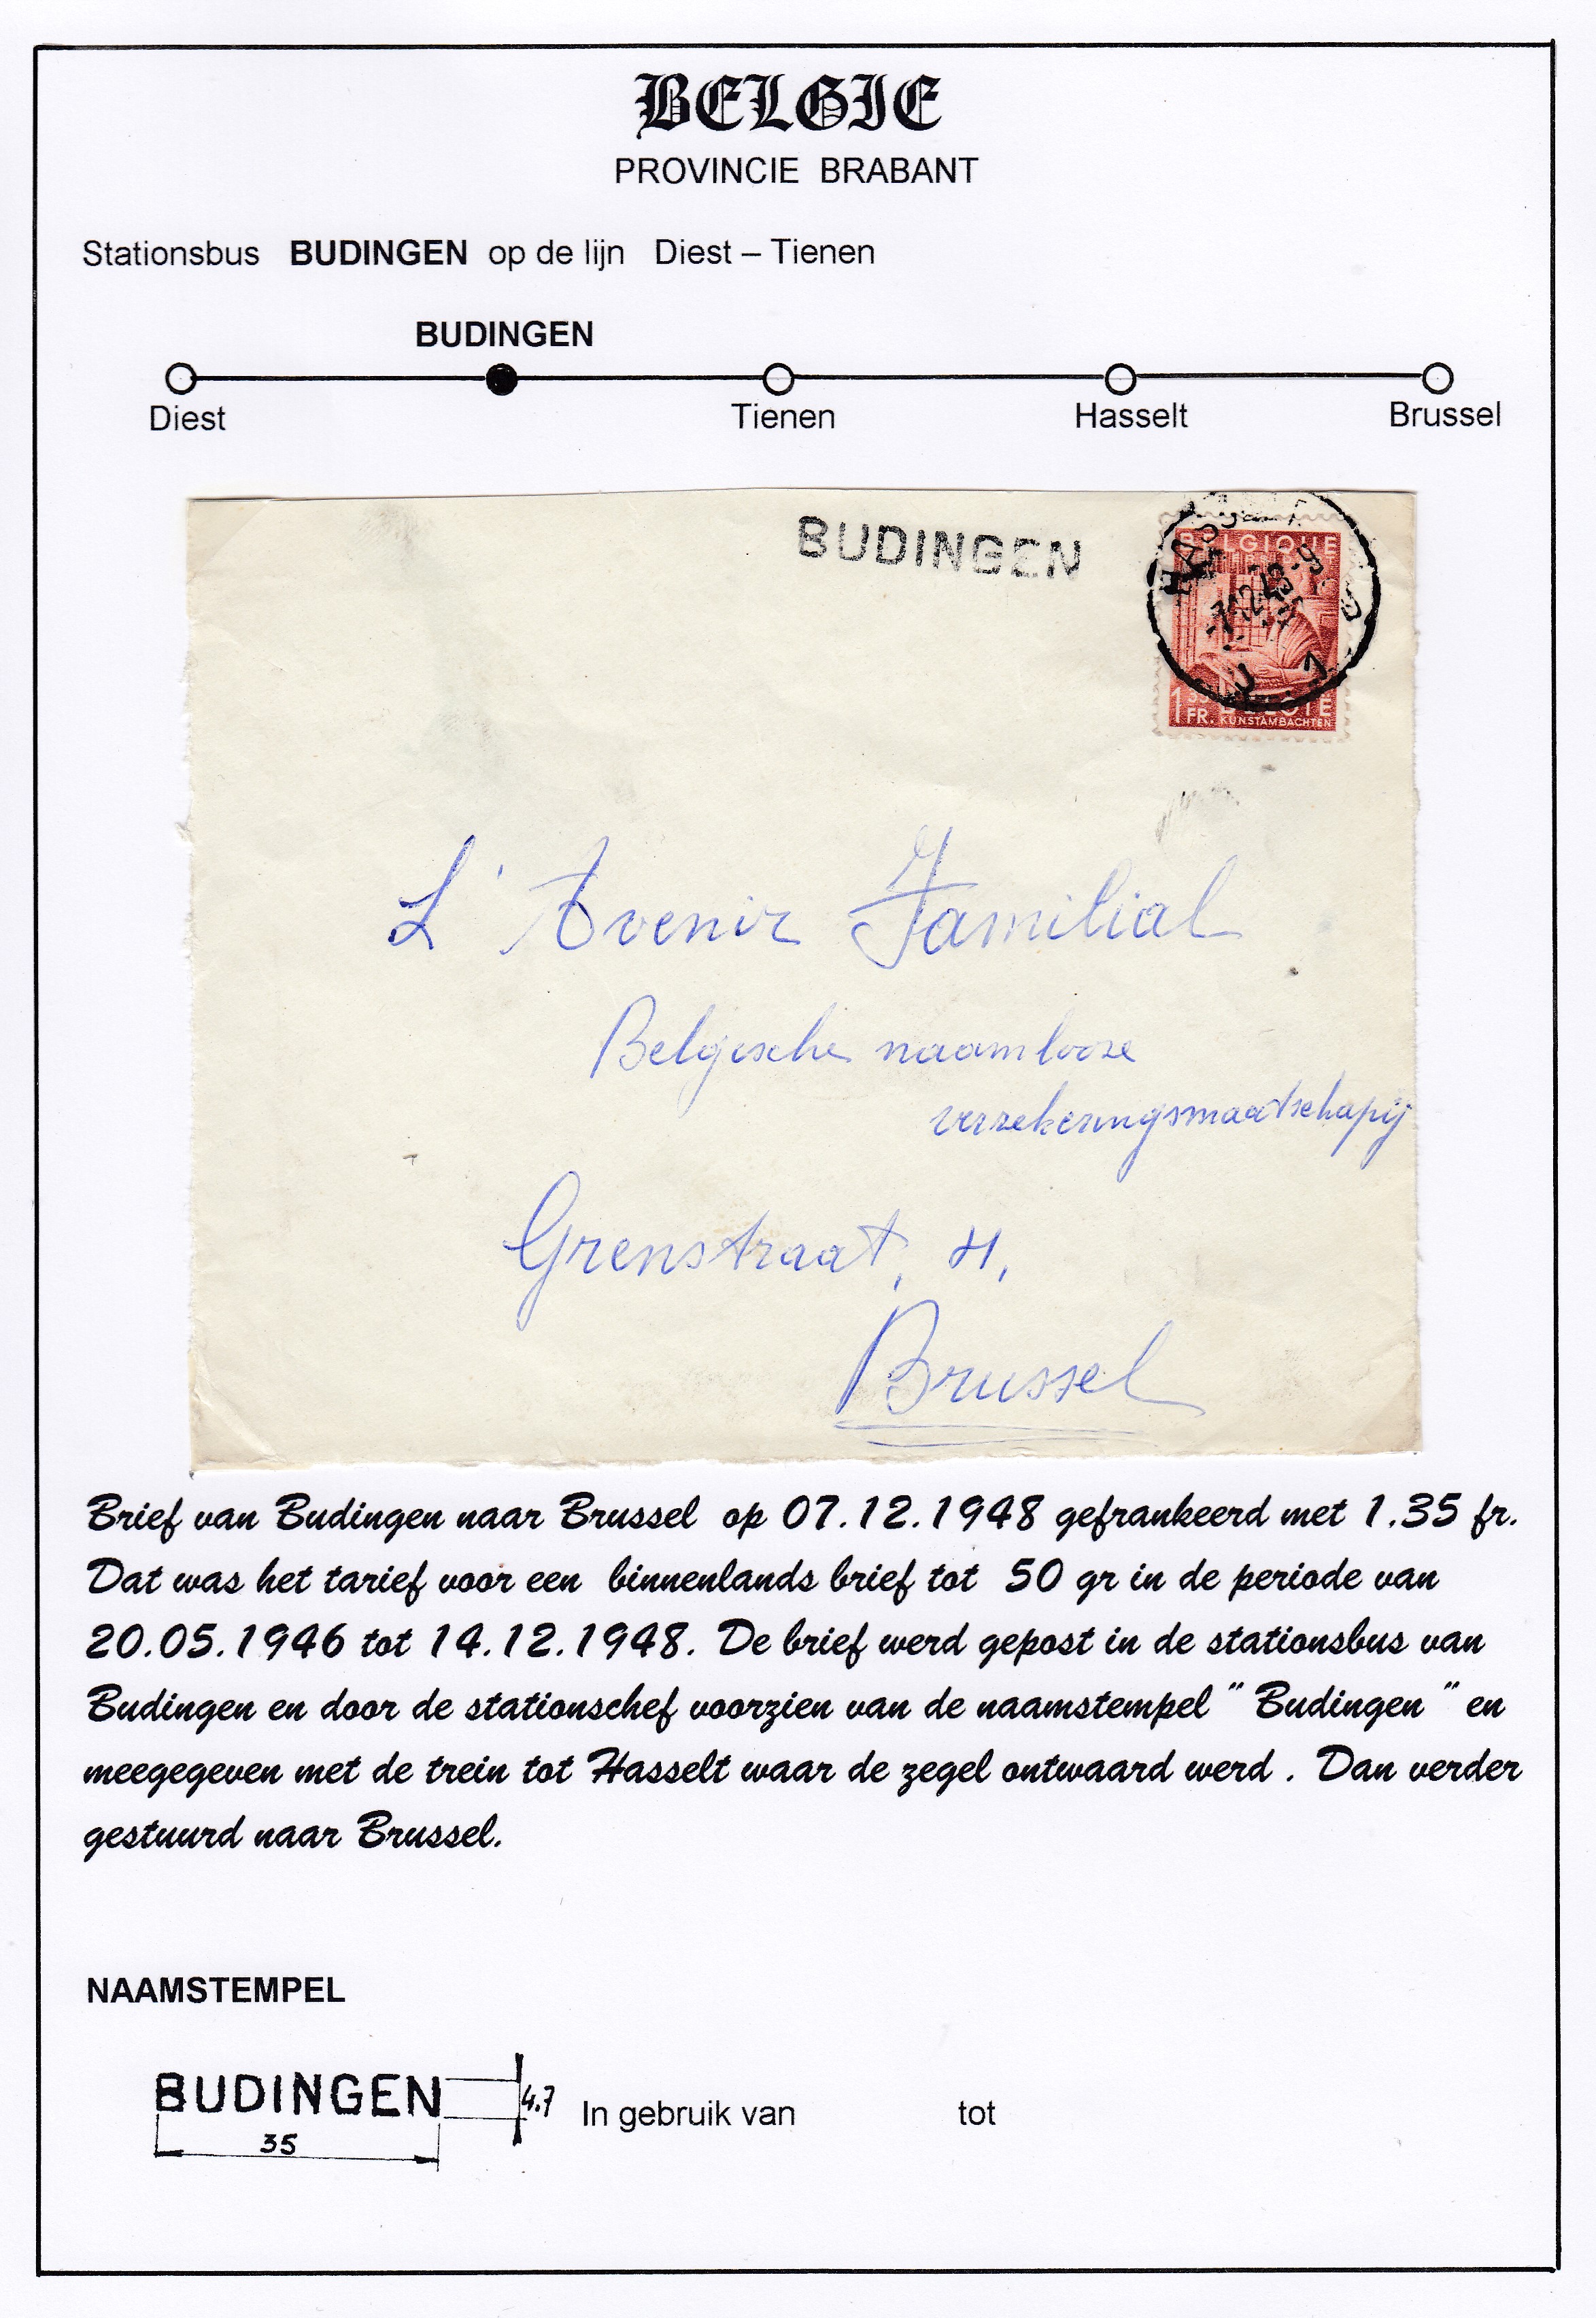 BELGIE
PROVINCIE BRABANT
Stationsbus BUDINGEN op de lijn Diest – Tienen
BUDINGEN
Diest Tienen Hasselt Brussel
BUDINGEN
BELGIQUE
-7.12.48
1 35 FR. BELGIE
KUNSTAMBACHTEN
L' Avenir Familial
Belgische naamlooze
verzekeringsmaatschapij
Grenstraat, 11,
Brussel
Brief van Budingen naar Brussel op 07.12.1948 gefrankeerd met 1.35 fr.
Dat was het tarief voor een binnenlands brief tot 50 gr in de periode van
20.05.1946 tot 14.12.1948. De brief werd gepost in de stationsbus van
Budingen en door de stationschef voorzien van de naamstempel " Budingen " en
meegegeven met de trein tot Hasselt waar de zegel ontwaard werd . Dan verder
gestuurd naar Brussel.
NAAMSTEMPEL
BUDINGEN 4.7 In gebruik van tot
35